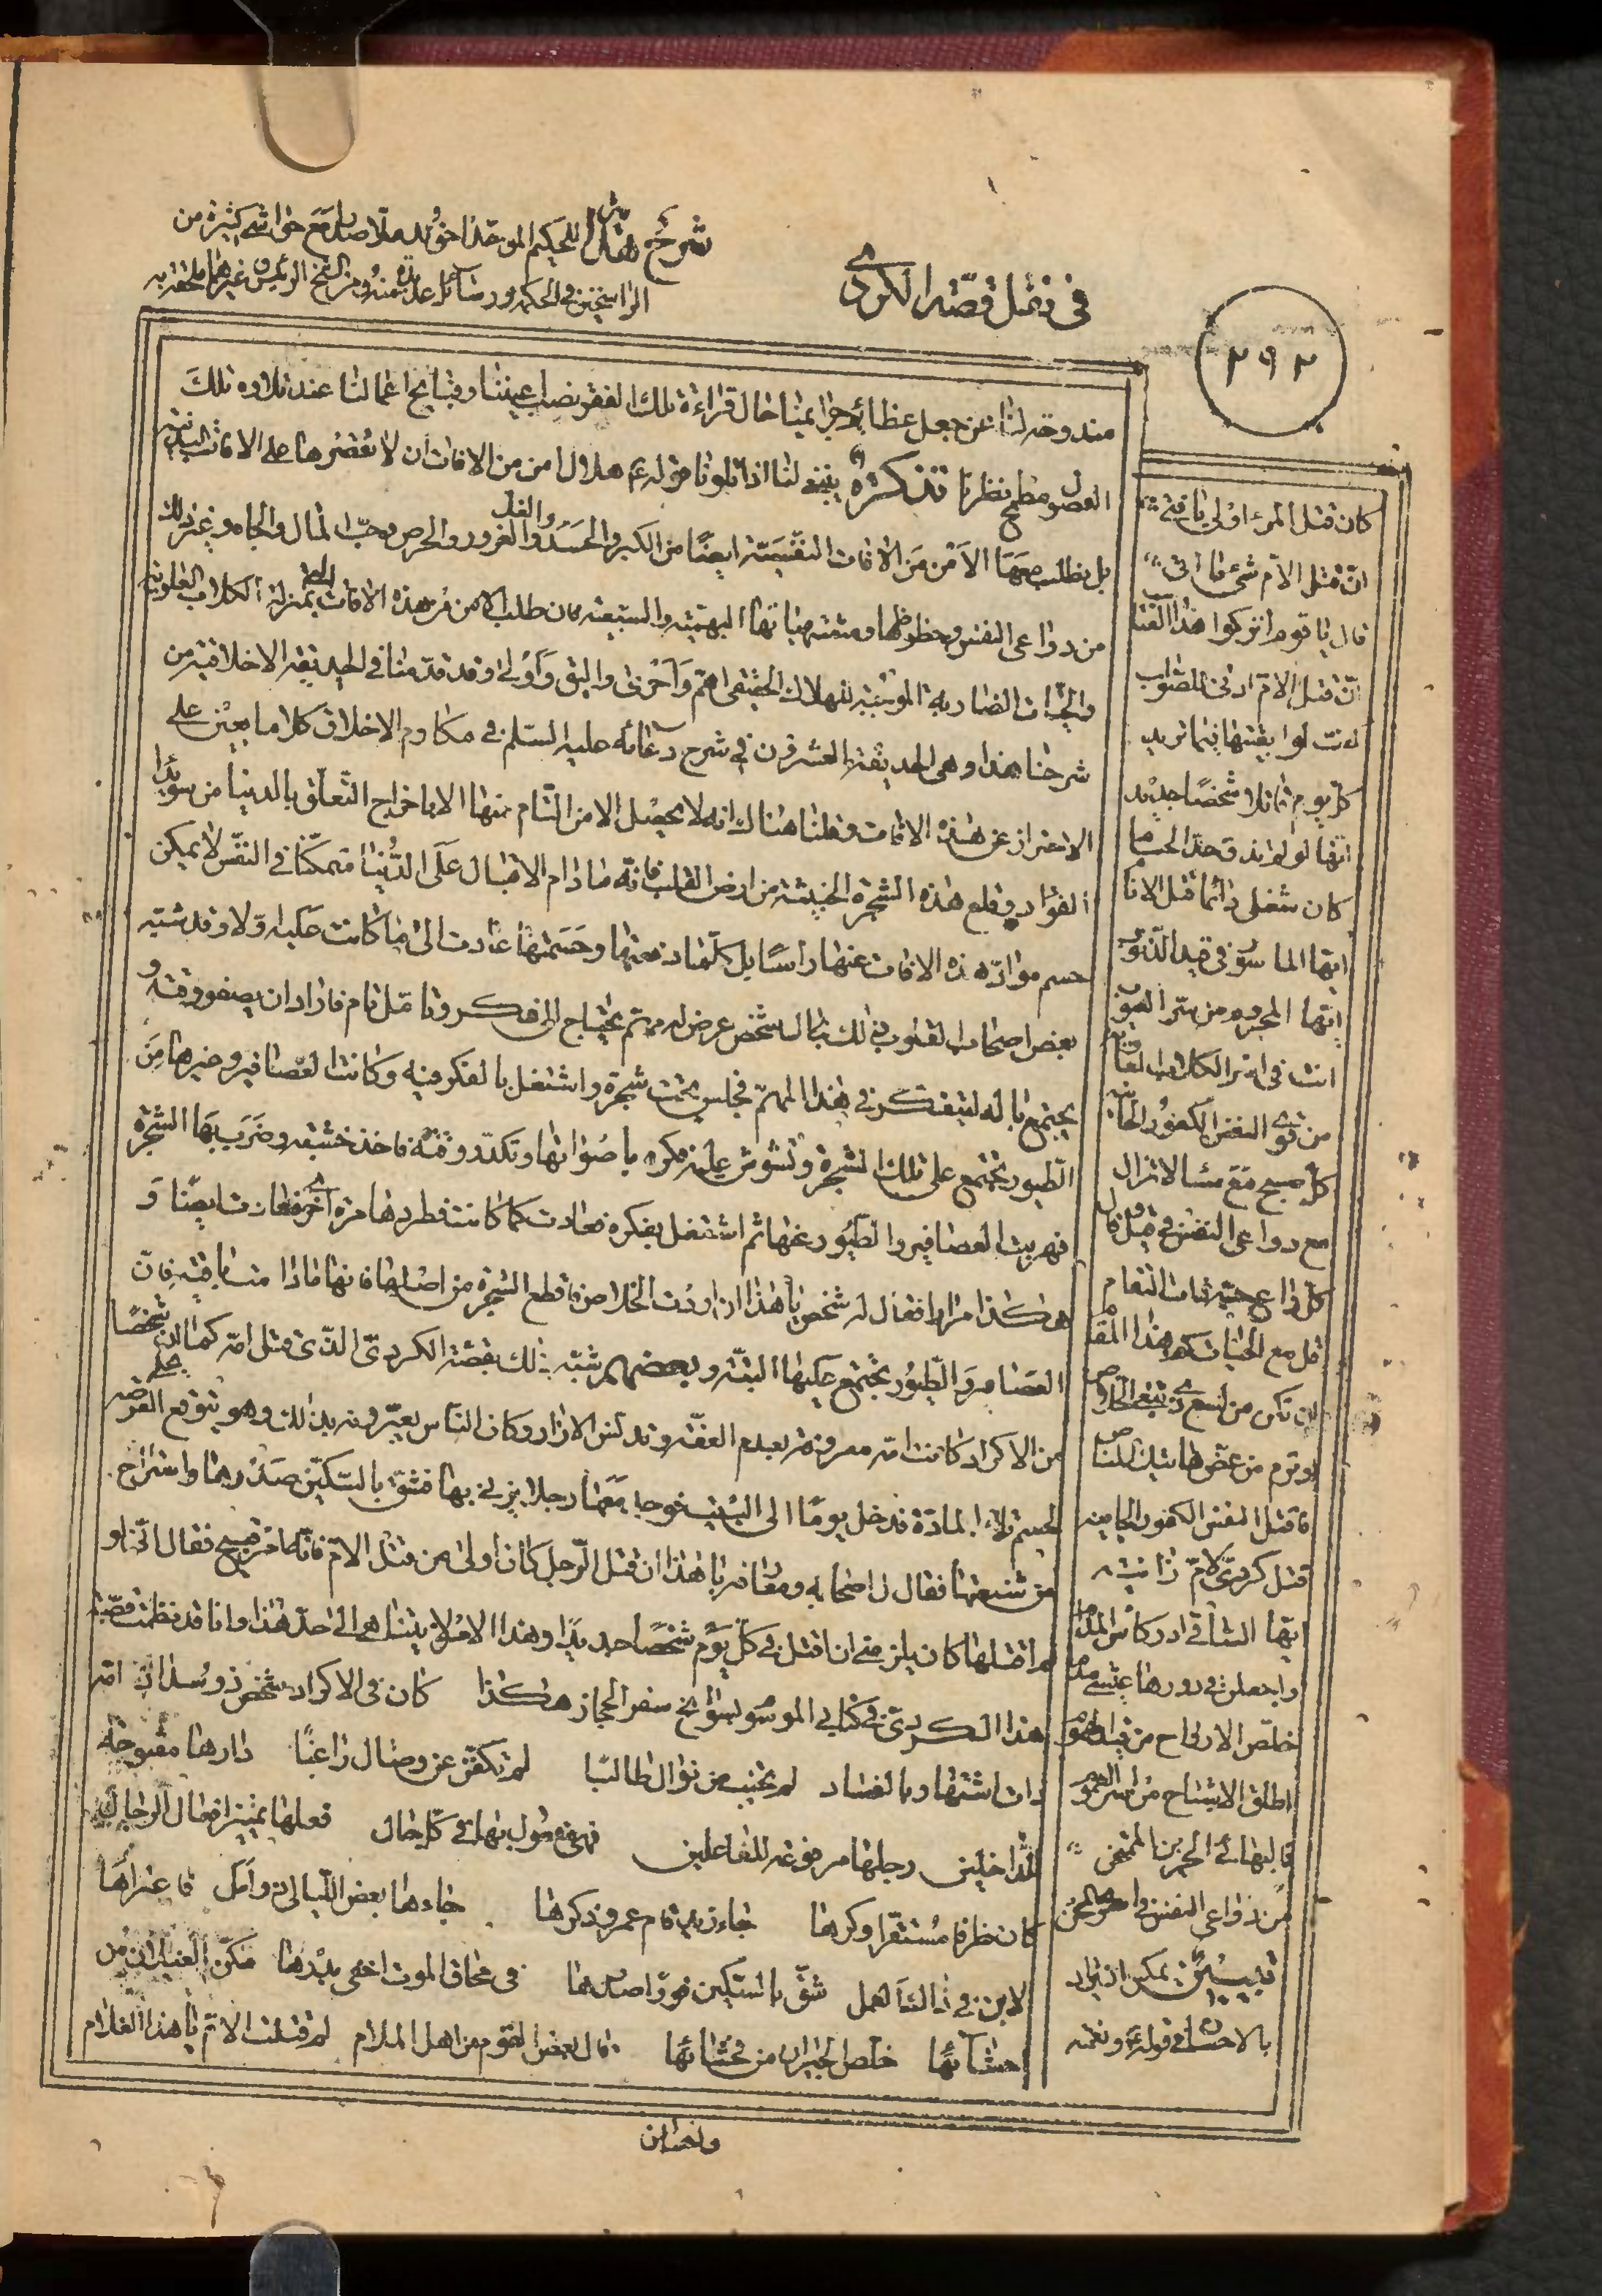 شرح هداية للحكيم الموحد اخوند ملا صدرا مع حواشي كثيرة من
الراسخين في الحكمة ورسائل عديدة منه ومن الشيخ الرئيس وغيرهما ملحقة به
في نقل قصة الكردي
٢٩٢
مندوحة لنا عن جعل عظائم جرايمنا حال قراءة تلك الفقر نصب اعيننا وقبايح اعمالنا عند تلاوة تلك
الفصول مطمح نظرنا تذكرة ينبغي لنا اذا تلونا قوله ع هلال امن من الافات ان لا نقصرها على الافات البدنية
بل نطلب معها الامن من الافات النفسية ايضا من الكبر والحسد والغل والغرور والحرص وحب المال والجاه وغير ذلك
من دواعي النفس وحظوظها ومشتهياتها البهيمية والسبعية فان طلب الامن من هذه الافات التي بمنزلة الكلاب العاوية
والحيات الضارية الموجبة للهلاك الحقيقي اهم واحرى واليق واولى وقد قدمنا في الحديقة الاخلاقية من
شرحنا هذا وهي الحديقة العشرون في شرح دعائه عليه السلم في مكارم الاخلاق كلاما يعين على
الاحتراز عن هذه الافات وقلنا هناك انه لا يحصل الامن التام منها الا باخراج التعلق بالدنيا من سويداء
الفؤاد وقلع هذه الشجرة الخبيثة من ارض القلب فانه ما دام الاقبال على الدنيا متمكنا في النفس لا يمكن
حسم مواد هذه الافات عنها راسا بل كلما دفعتها وحسمتها عادت الى ما كانت عليه اولا وقد شبه
بعض اصحاب القلوب ذلك بحال شخص عرض له مهم يحتاج الى فكر وتامل تام فاراد ان يصفو وقته و
يجتمع باله ليتفكر في هذا المهم فجلس تحت شجرة واشتغل بالفكر فيه وكانت العصافير وغيرها من
الطيور تجتمع على تلك الشجرة وتشوش عليه فكره باصواتها وتكدر وقته فاخذ خشبة وضرب بها الشجرة
فهربت العصافير والطيور عنها ثم اشتغل بفكره فعادت كما كانت فطردها مرة اخرى فعادت ايضا و
هكذا مرارا فقال له شخص يا هذا ان اردت الخلاص فاقطع الشجرة من اصلها فانها ما دامت باقية فان
العصافير والطيور تجتمع عليها البتة وبعضهم شبه ذلك بقصة الكردي الذي قتل امه كما ان شخصا
من الاكراد كانت امه معروفة بعدم العفة وتدنس الازار وكان الناس يعيرونه بذلك وهو يتوقع الفرصة على
حسم تلك المادة فدخل يوما الى البيت فوجد معها رجلا يزني بها فشق بالسكين صدرها واستراح
من شنعتها فقال له اصحابه ومعارفه يا هذا ان قتل الرجل كان اولى من قتل الام فانه امر قبيح فقال اني لو
لم اقتلها كان يلزمني ان اقتل في كل يوم شخصا جديدا وهذا الامر لا يتناهى الى حد هذا وانا قد نظمت قصة
هذا الكردي في كتابي الموسوم بسوانح سفر الحجاز هكذا كان في الاكراد شخص ذو سداد امه
ذات اشتهار بالفساد لم تخيب من نوال طالبا لم تكفف عن وصال راغبا دارها مفتوحة
للداخلين رجلها مرفوعة للفاعلين فهي مفعول بها في كل حال فعلها تمييز افعال الرجال
كان ظرفا مستقرا وكرها جاء زيد قام عمرو ذكرها جاءها بعض الليالي ذو امل فاعتراها
الابن في ذاك العمل شق بالسكين فورا صدرها في محاق الموت اخفى بدرها مكن الغيلان من
احشائها خلص الجيران من فحشائها قال بعض القوم من اهل الملام لم قتلت الام يا هذا الغلام
كان قتل المرء اولى يا فتى
ان قتل الام شيء ما اتى
قال يا قوم اتركوا هذا العتاب
ان قتل الام ادنى للصواب
كنت لو ابقيتها فيما تريد
كل يوم قاتلا شخصا جديد
انها لو لم تذق حد الحسام
كان شغلي دائما قتل الانام
ايها الماسور في قيد الذنوب
ايها المحروم من سر الغيوب
انت في اسر الكلاب العاوية
من قوى النفس الكفور الجانية
كل صبح مع مسا لا تزال
مع دواعي النفس في قيل وقال
كل داع حية ذات التقام
قل مع الحيات كم هذا المقام
ان تكن من لسع ذي تبغي الخلاص
او ترم من عض هاتيك المناص
فاقتل النفس الكفور الجانية
قتل كردي لام زانية
ايها الساقي ادر كاس المدام
واجعلن في دورها عيشي مدام
خلص الارواح من قيد الهموم
اطلق الاشباح من اسر الغموم
فالبهائي الحزين الممتحن
من دواعي النفس في اسر المحن
تبيين يمكن ان يراد
بالاحسان في قوله ع ونعمة
واحسان